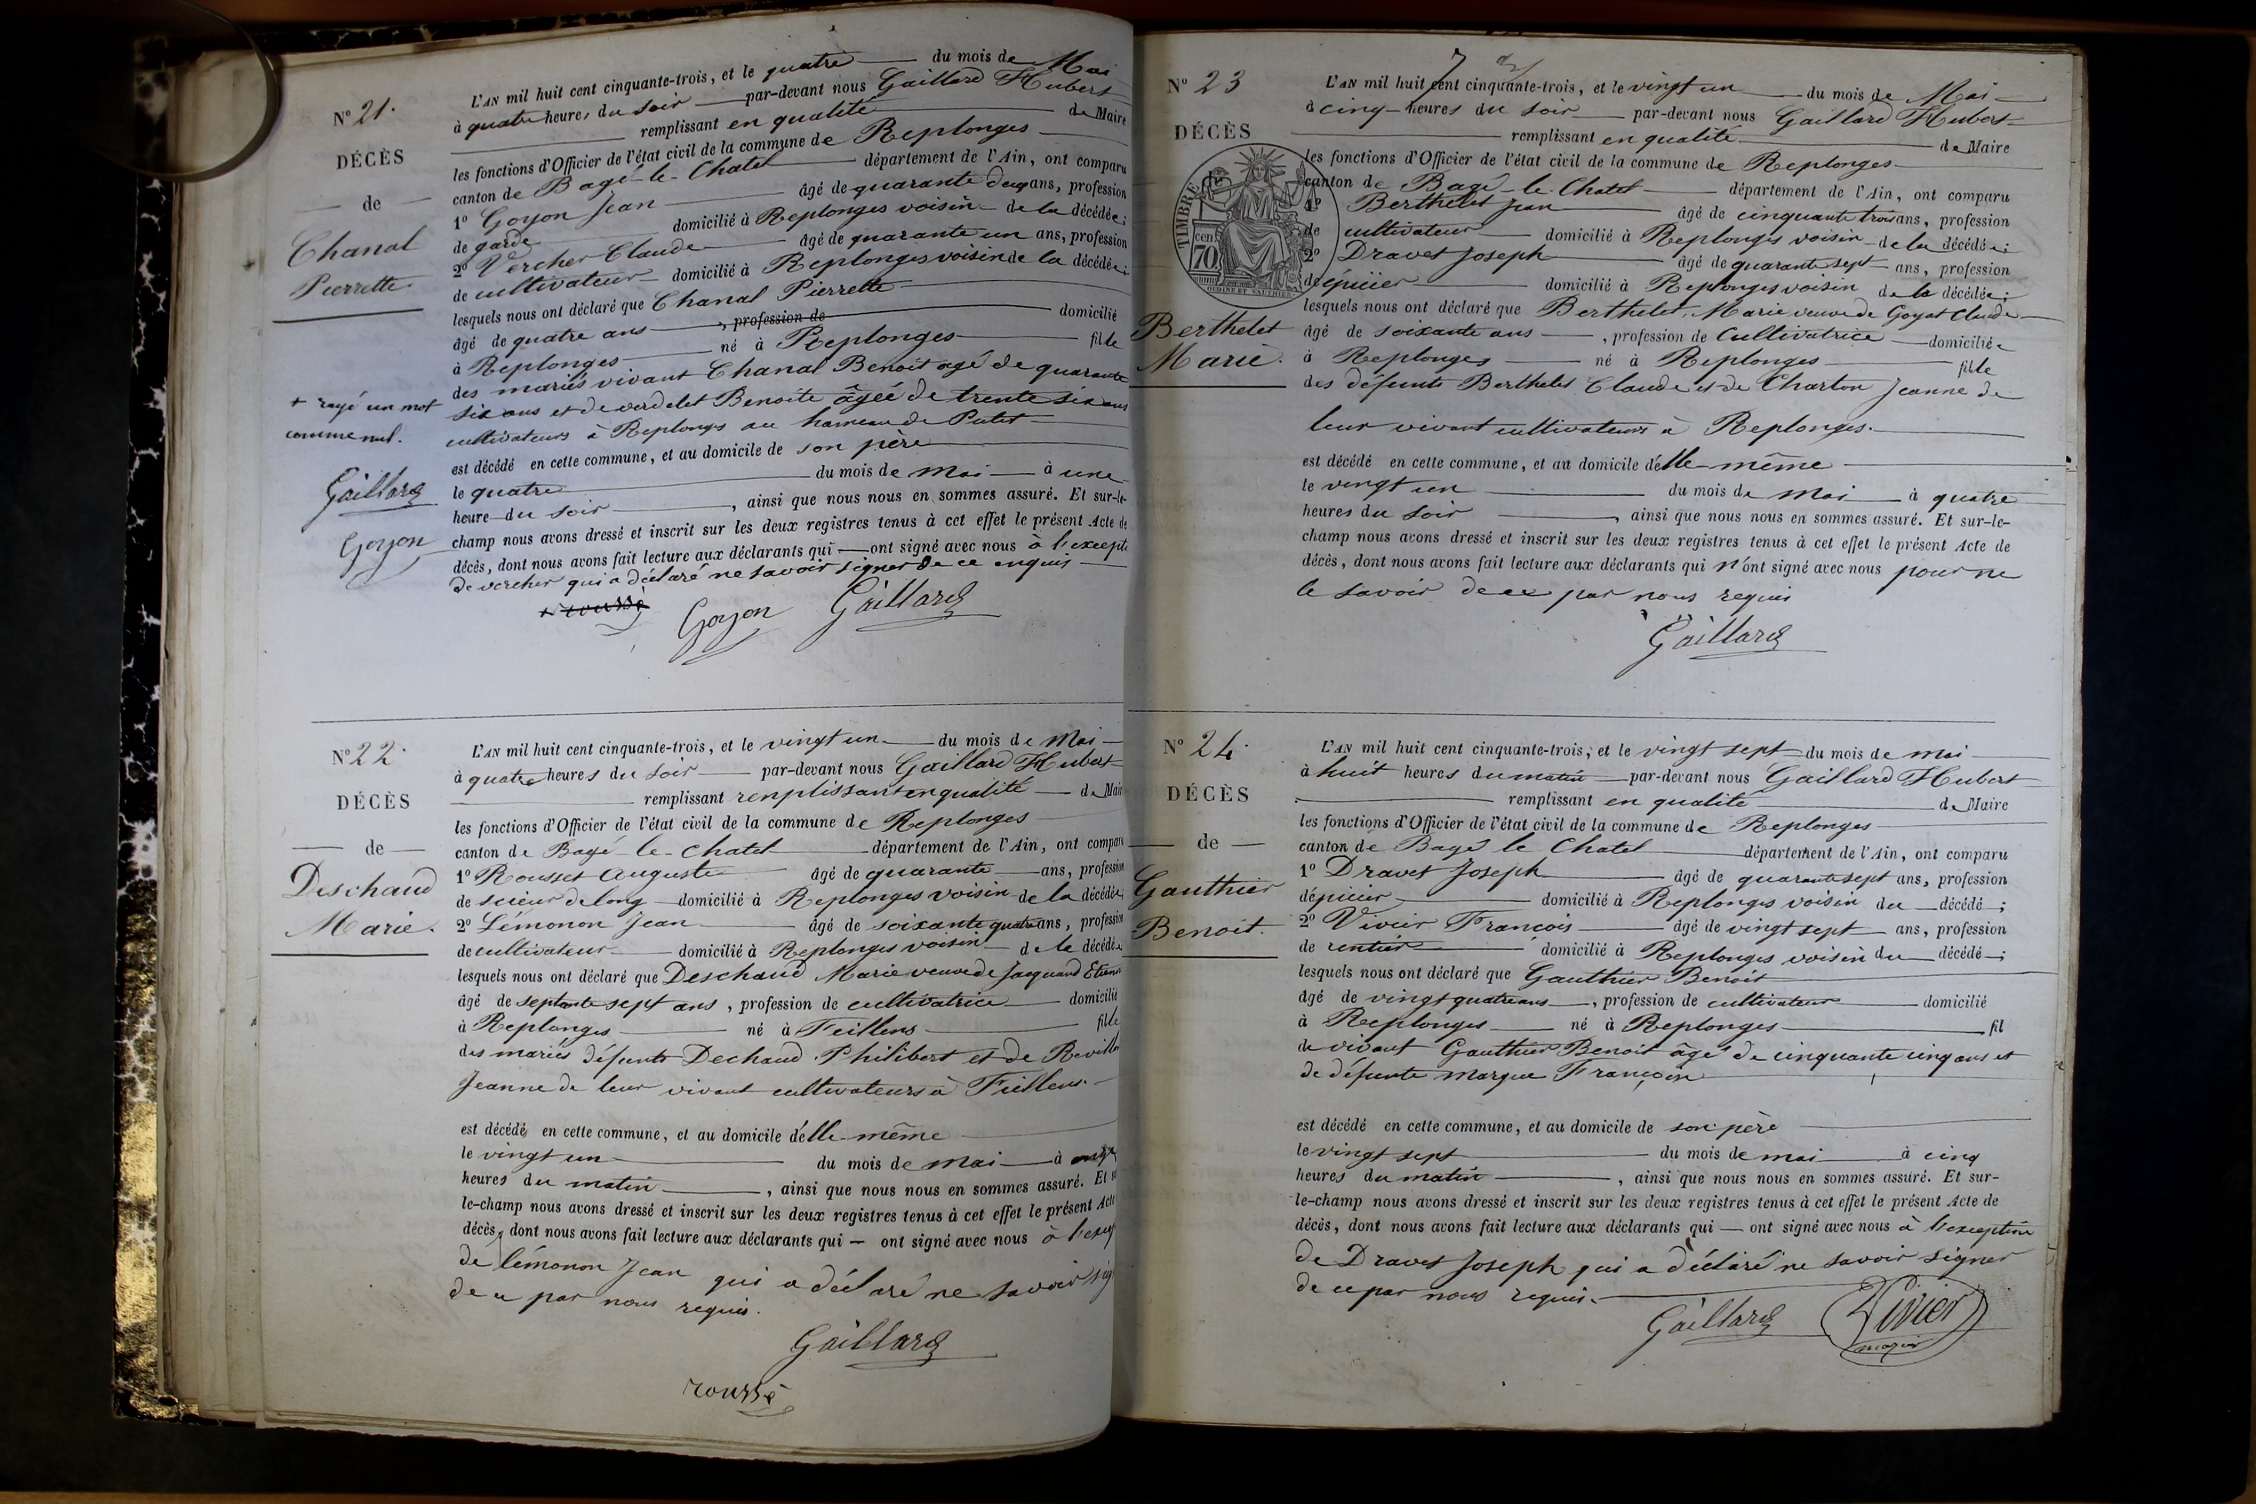 N° 21.
DÉCÈS
de
Chanal
Pierrette
+ rayé un mot
comme nul.
Gaillard
Goyon
L'AN mil huit cent cinquante-trois, et le quatre du mois de Mai
à quatre heures du soir par-devant nous Gaillard Hubert
remplissant en qualité de Maire
les fonctions d'Officier de l'état civil de la commune de Replonges
canton de Bagé-le-Chatel département de l'Ain, ont comparu
1° Goyon Jean âgé de quarante deux ans, profession
de garde domicilié à Replonges voisin de la décédée;
2° Vercher Claude âgé de quarante un ans, profession
de cultivateur domicilié à Replonges voisin de la décédée;
lesquels nous ont déclaré que Chanal Pierrette
âgé de quatre ans, profession de domicilié
à Replonges né à Replonges fille
des mariés vivant Chanal Benoit agé de quarante
six ans et de verdelet Benoite âgée de trente six ans
cultivateurs à Replonges au hameau de
est décédé en cette commune, et au domicile de son père
le quatre du mois de mai à une
heure du soir, ainsi que nous nous en sommes assuré. Et sur-le-
champ nous avons dressé et inscrit sur les deux registres tenus à cet effet le présent Acte de
décès, dont nous avons fait lecture aux déclarants qui ont signé avec nous à l'except
de vercher qui a déclaré ne savoir signer de ce enquis
+ roussé
Goyon Gaillard
N° 22.
DÉCÈS
de
Deschaud
Marie.
L'AN mil huit cent cinquante-trois, et le vingt un du mois de Mai
à quatre heures du soir par-devant nous Gaillard Hubert
remplissant remplissant en qualité de Mair
les fonctions d'Officier de l'état civil de la commune de Replonges
canton de Bagé-le-Chatel département de l'Ain, ont comparu
1° Rousset Auguste âgé de quarante ans, profession
de scieur de long domicilié à Replonges voisin de la décédée;
2° Lémonon Jean âgé de soixante quatre ans, profession
de cultivateur domicilié à Replonges voisin de la décédée
lesquels nous ont déclaré que Deschaud Marie veuve de Jacquand Etienne
âgé de septante sept ans, profession de cultivatrice domicilié
à Replonges né à Feillens fille
des mariés défunts Dechaud Philibert et de
Jeanne de leur vivant cultivateurs à Feillens.
est décédé en cette commune, et au domicile d'elle-même
le vingt un du mois de mai à onze
heures du matin, ainsi que nous nous en sommes assuré. Et s
le-champ nous avons dressé et inscrit sur les deux registres tenus à cet effet le présent Acte
décès, dont nous avons fait lecture aux déclarants qui ont signé avec nous à l'excep
de Lémonon Jean qui a déclaré ne savoir sig
de ce par nous requis.
Gaillard
roussé
N° 23
DÉCÈS
TIMBRE
cen
70
Berthelet
Marie.
7
L'AN mil huit cent cinquante-trois, et le vingt un du mois de Mai
à cinq heures du soir par-devant nous Gaillard Hubert
remplissant en qualité de Maire
les fonctions d'Officier de l'état civil de la commune de Replonges
canton de Bagé-le-Chatel département de l'Ain, ont comparu
1° Berthelet Jean âgé de cinquante trois ans, profession
de cultivateur domicilié à Replonges voisin de la décédée;
2° Dravet Joseph âgé de quarante sept ans, profession
d'épicier domicilié à Replonges voisin de la décédée;
lesquels nous ont déclaré que Berthelet, Marie veuve de Goyat Claude
âgé de soixante ans, profession de Cultivatrice domiciliée
à Replonges né à Replonges fille
des défunts Berthelet Claude et de Charton Jeanne de
leur vivant cultivateurs à Replonges.
est décédé en cette commune, et au domicile d'elle-même
le vingt un du mois de mai à quatre
heures du soir, ainsi que nous nous en sommes assuré. Et sur-le-
champ nous avons dressé et inscrit sur les deux registres tenus à cet effet le présent Acte de
décès, dont nous avons fait lecture aux déclarants qui n'ont signé avec nous pour ne
le savoir de ce par nous requis
Gaillard
N° 24.
DÉCÈS
de
Gauthier
Benoit.
L'AN mil huit cent cinquante-trois, et le vingt sept du mois de mai
à huit heures du matin par-devant nous Gaillard Hubert
remplissant en qualité de Maire
les fonctions d'Officier de l'état civil de la commune de Replonges
canton de Bagé le Chatel département de l'Ain, ont comparu
1° Dravet Joseph âgé de quarante sept ans, profession
d'épicier domicilié à Replonges voisin du décédé;
2° Vivier François âgé de vingt sept ans, profession
de rentier domicilié à Replonges voisin du décédé;
lesquels nous ont déclaré que Gauthier Benoit
âgé de vingt quatre ans, profession de cultivateur domicilié
à Replonges né à Replonges fil
de vivant Gauthier Benoit âgé de cinquante cinq ans et
de défunte Marque
est décédé en cette commune, et au domicile de son père
le vingt sept du mois de mai à cinq
heures du matin, ainsi que nous nous en sommes assuré. Et sur-
le-champ nous avons dressé et inscrit sur les deux registres tenus à cet effet le présent Acte de
décès, dont nous avons fait lecture aux déclarants qui ont signé avec nous à l'exception
de Dravet Joseph qui a déclaré ne savoir signer
de ce par nous requis.
Gaillard Vivier